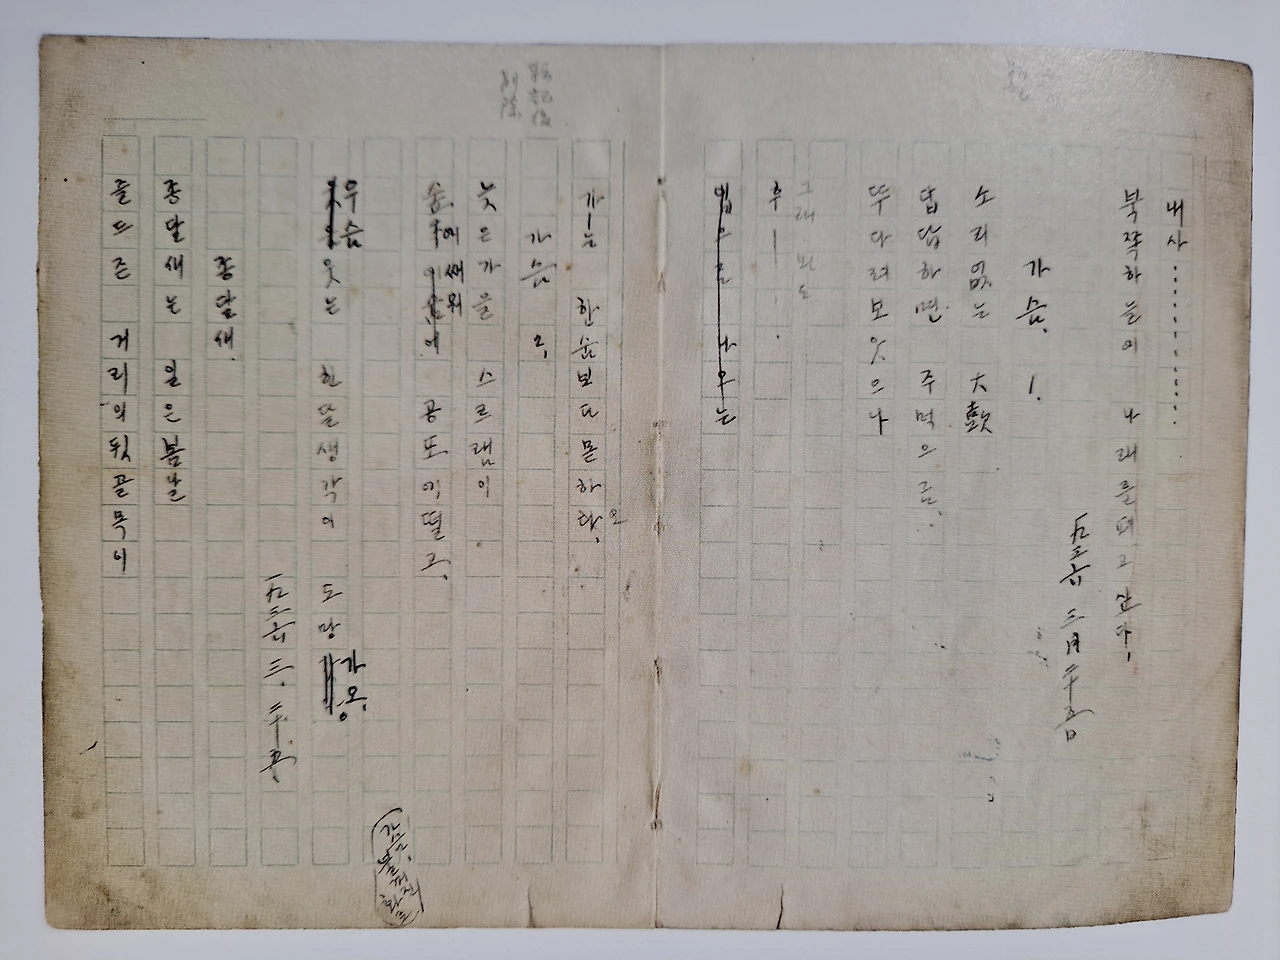 내사..............
북작하는이 나래를떠고 간다.
一九三六 三月二十五日
가슴. 1.
소리없는 大鼓
답답하면 주먹으름.
뚜다려보앗으나
그래 봐도
후――.
는
가―는 한숨보다 몯하다.
轉記後
削除
가슴 2.
늣은가을 스르램이
숲에쌔워 공포에떨고.
우슴웃는 한달생각이 도망가오.
一九三六. 三. 二十五.
종달새.
종달새는 일은봄날
즐드즌 거리의뒷골목이